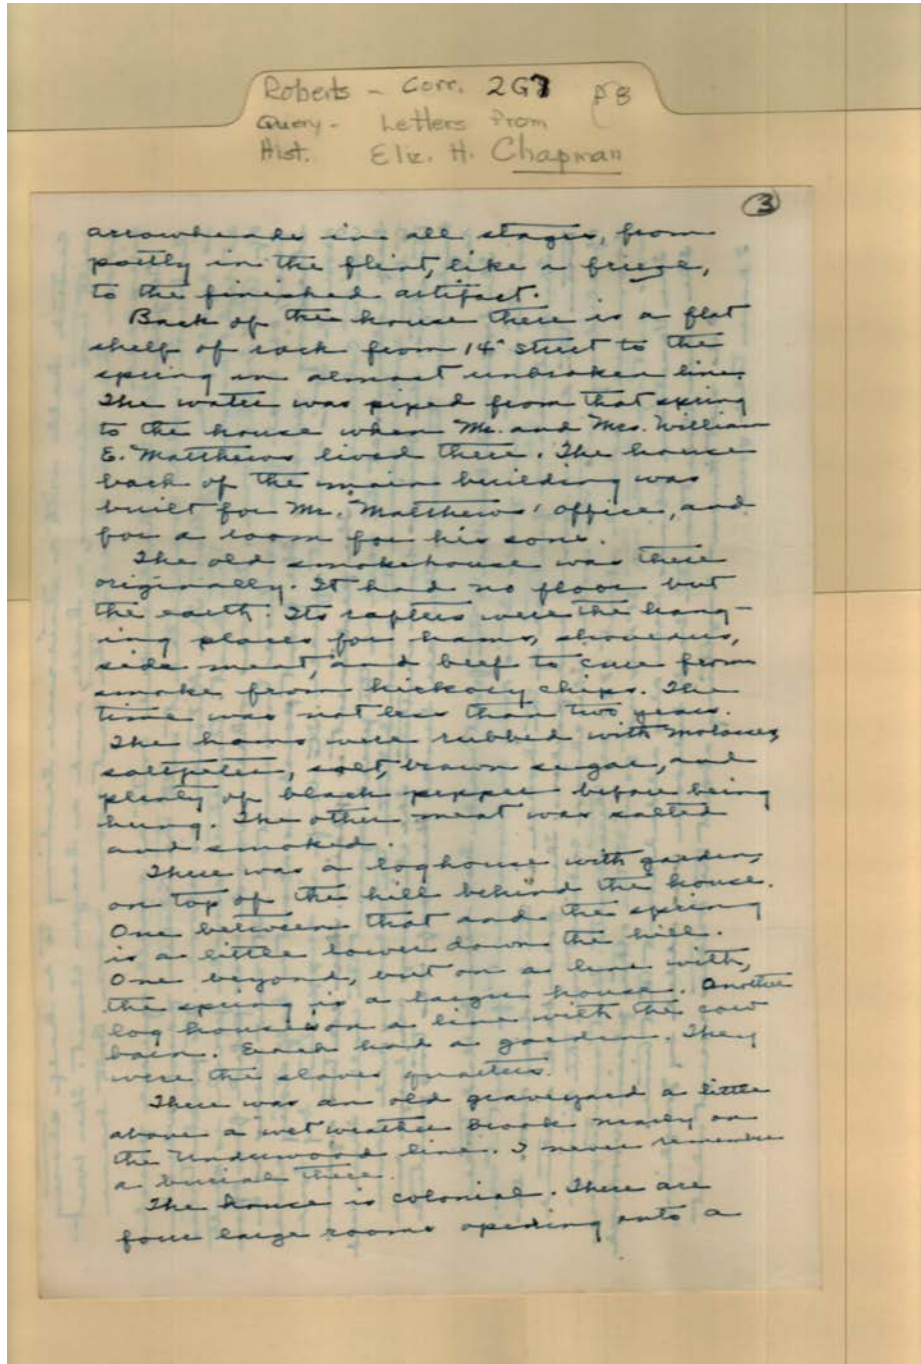 Roberts - Corr. 2G7 p8
Query - Letters from
Hist. Eliz. H. Chapman
3
arrowheads in all stages, from
partly in the flint, like a frieze,
to the finished artifact.
Back of the house there is a flat
shelf of rock from 14" Street to the
spring in almost unbroken line.
The water was piped from that spring
to the house when Mr. and Mrs. William
E. Matthews lived there. The house
back of the main building was
built for Mr. Matthews' office, and
for a room for his sons.
The old smokehouse was there
originally. It had no floor but
the earth. Its rafters were the hang-
ing places for hams, shoulders,
side meat, and beef to cure from
smoke from hickory chips. The
time was not less than two years.
The hams were rubbed with molasses,
saltpeter, salt, brown sugar, and
plenty of black pepper before being
hung. The other meat was salted
and smoked.
There was a loghouse with garden,
on top of the hill behind the house.
One between that and the spring
is a little lower down the hill.
One beyond, but on a line with,
the spring is a larger house. Another
log house is on a line with the cow
barn. Each had a garden. They
were the slaves quarters.
There was an old graveyard a little
above a wet weather brook nearly on
the Underwood line. I never remember
a burial there.
The house is colonial. There are
four large rooms opening onto a